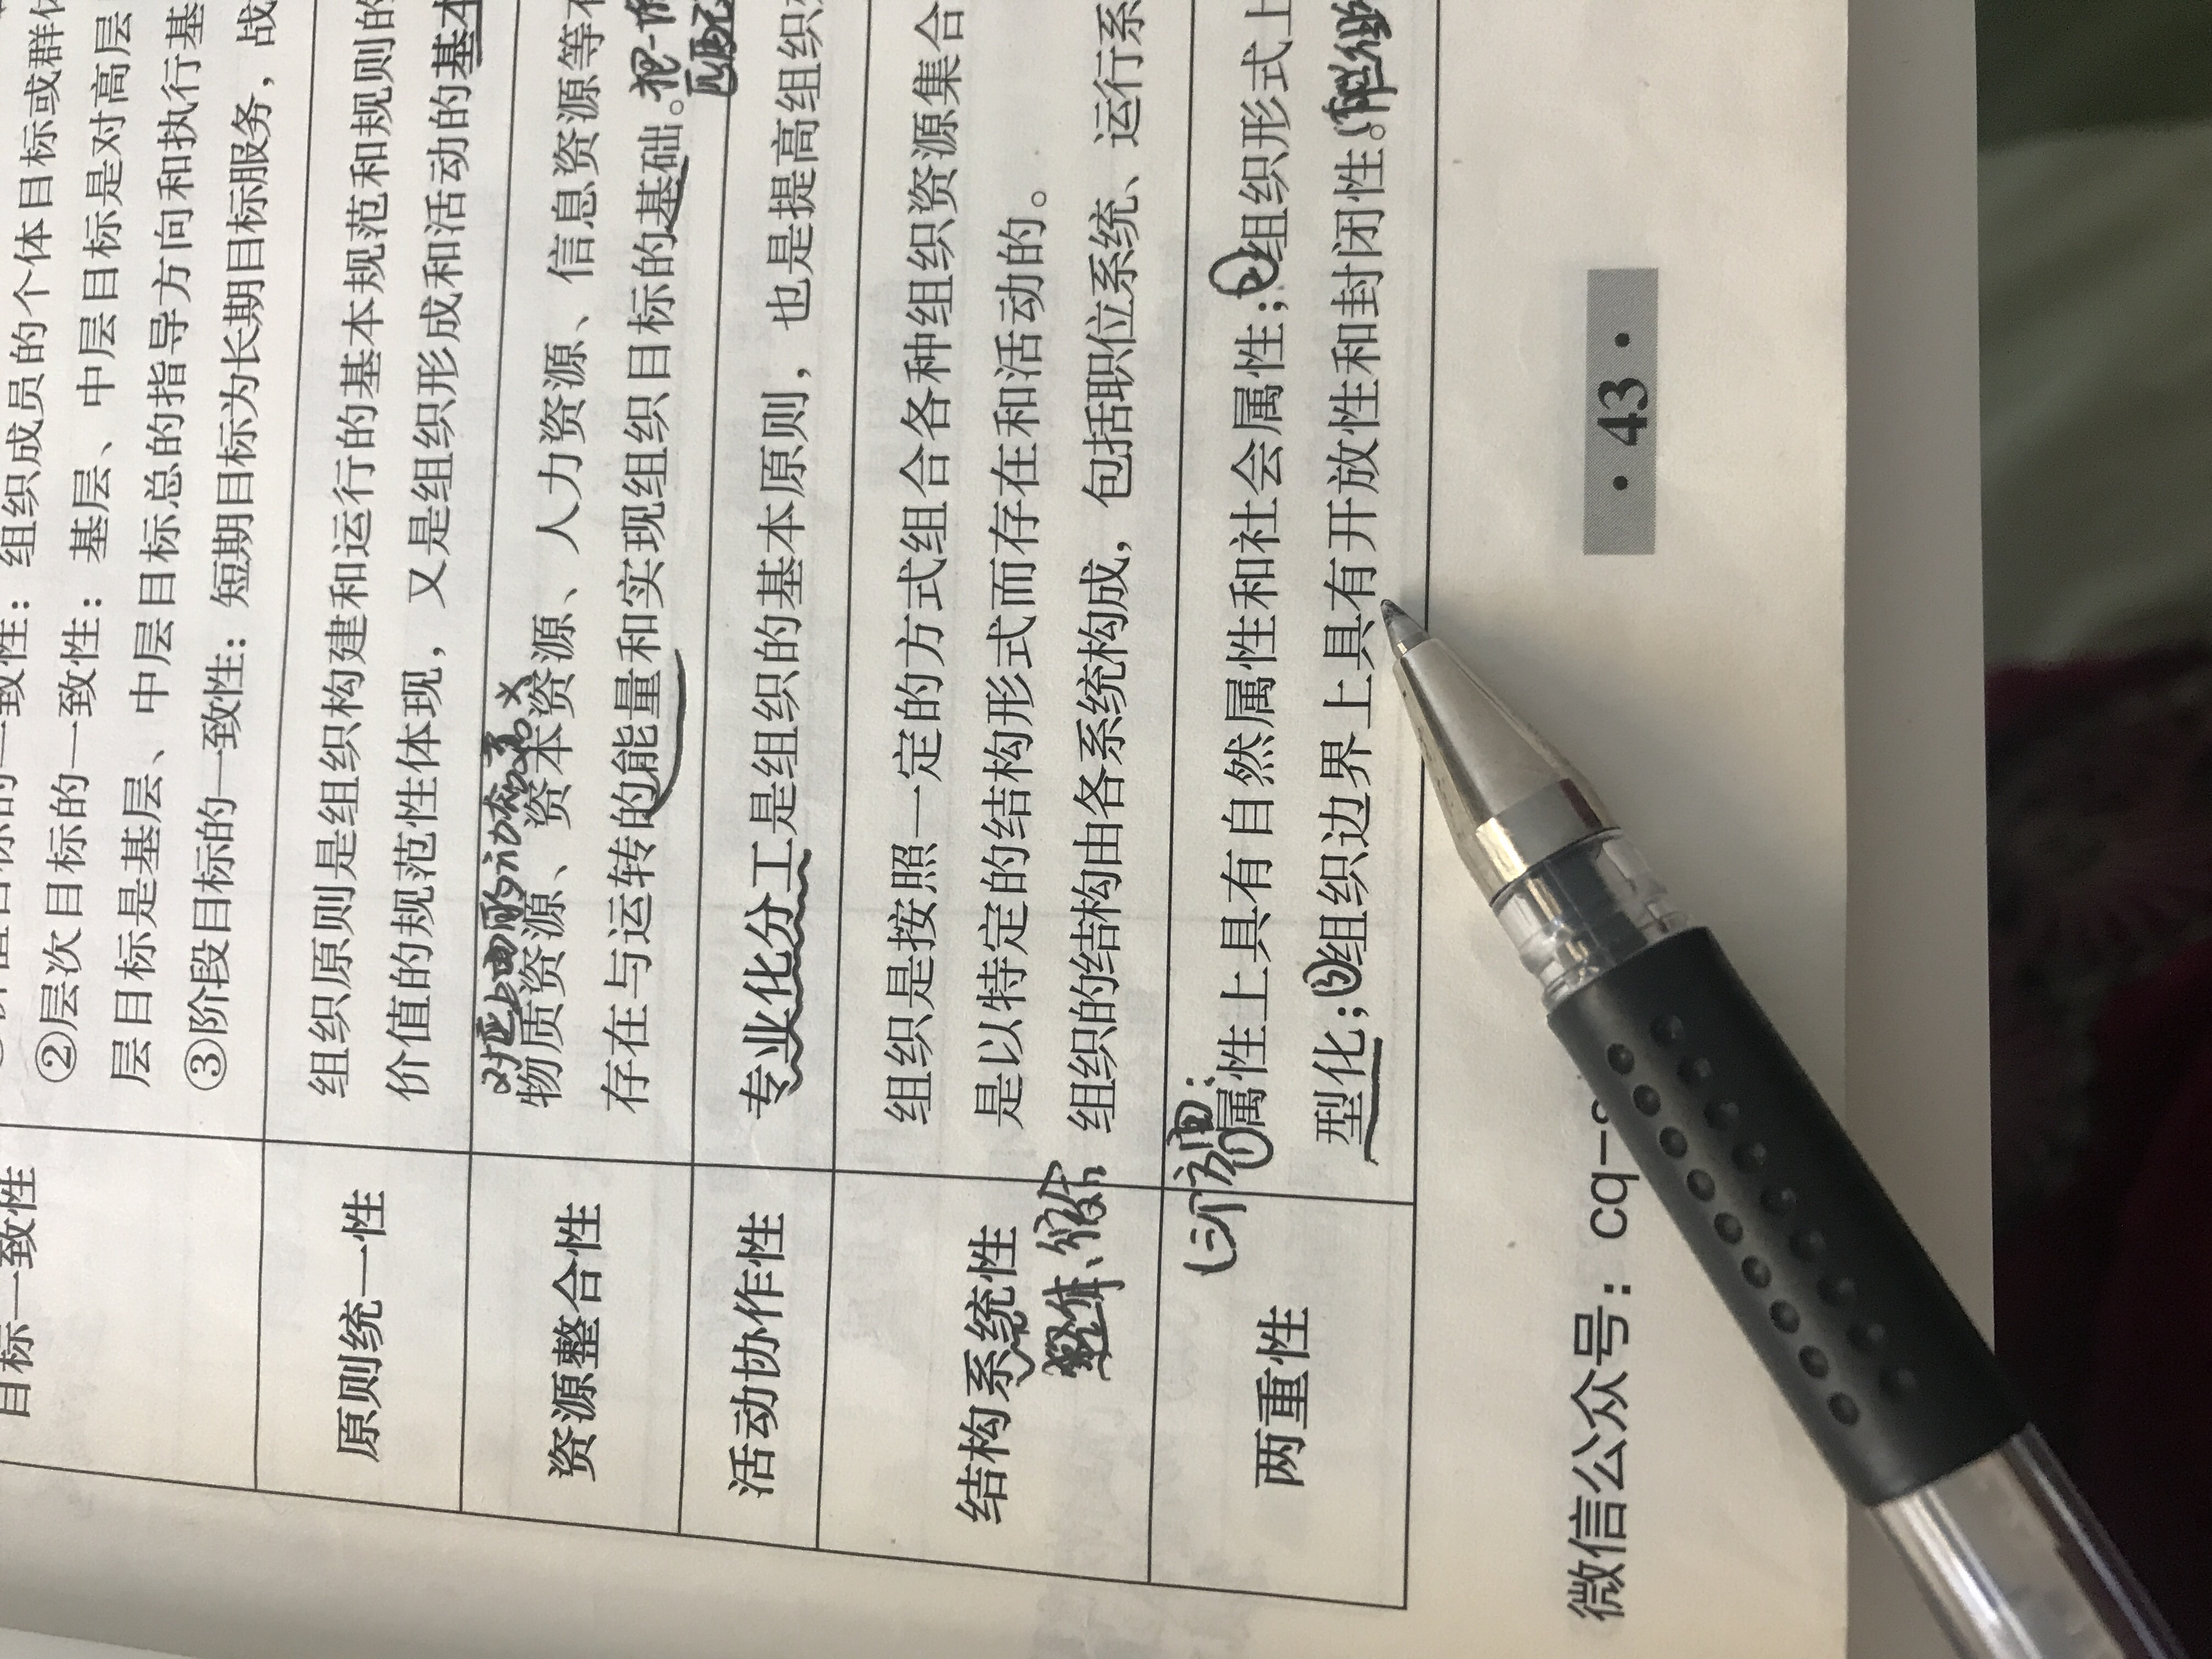 目标一致性
一致性：组织成员的个体目标或群体
②层次目标的一致性：基层、中层目标是对高层
层目标是基层、中层目标总的指导方向和执行基
③阶段目标的一致性：短期目标为长期目标服务，战
原则统一性
组织原则是组织构建和运行的基本规范和规则的
价值的规范性体现，又是组织形成和活动的基本
资源整合性
物质资源、资本资源、人力资源、信息资源等不
存在与运转的能量和实现组织目标的基础。
活动协作性
专业化分工是组织的基本原则，也是提高组织
结构系统性
组织是按照一定的方式组合各种组织资源集合
是以特定的结构形式而存在和活动的。
组织的结构由各系统构成，包括职位系统、运行系
两重性
①属性上具有自然属性和社会属性；②组织形式上
型化；③组织边界上具有开放性和封闭性。
·43·
微信公众号：cq-